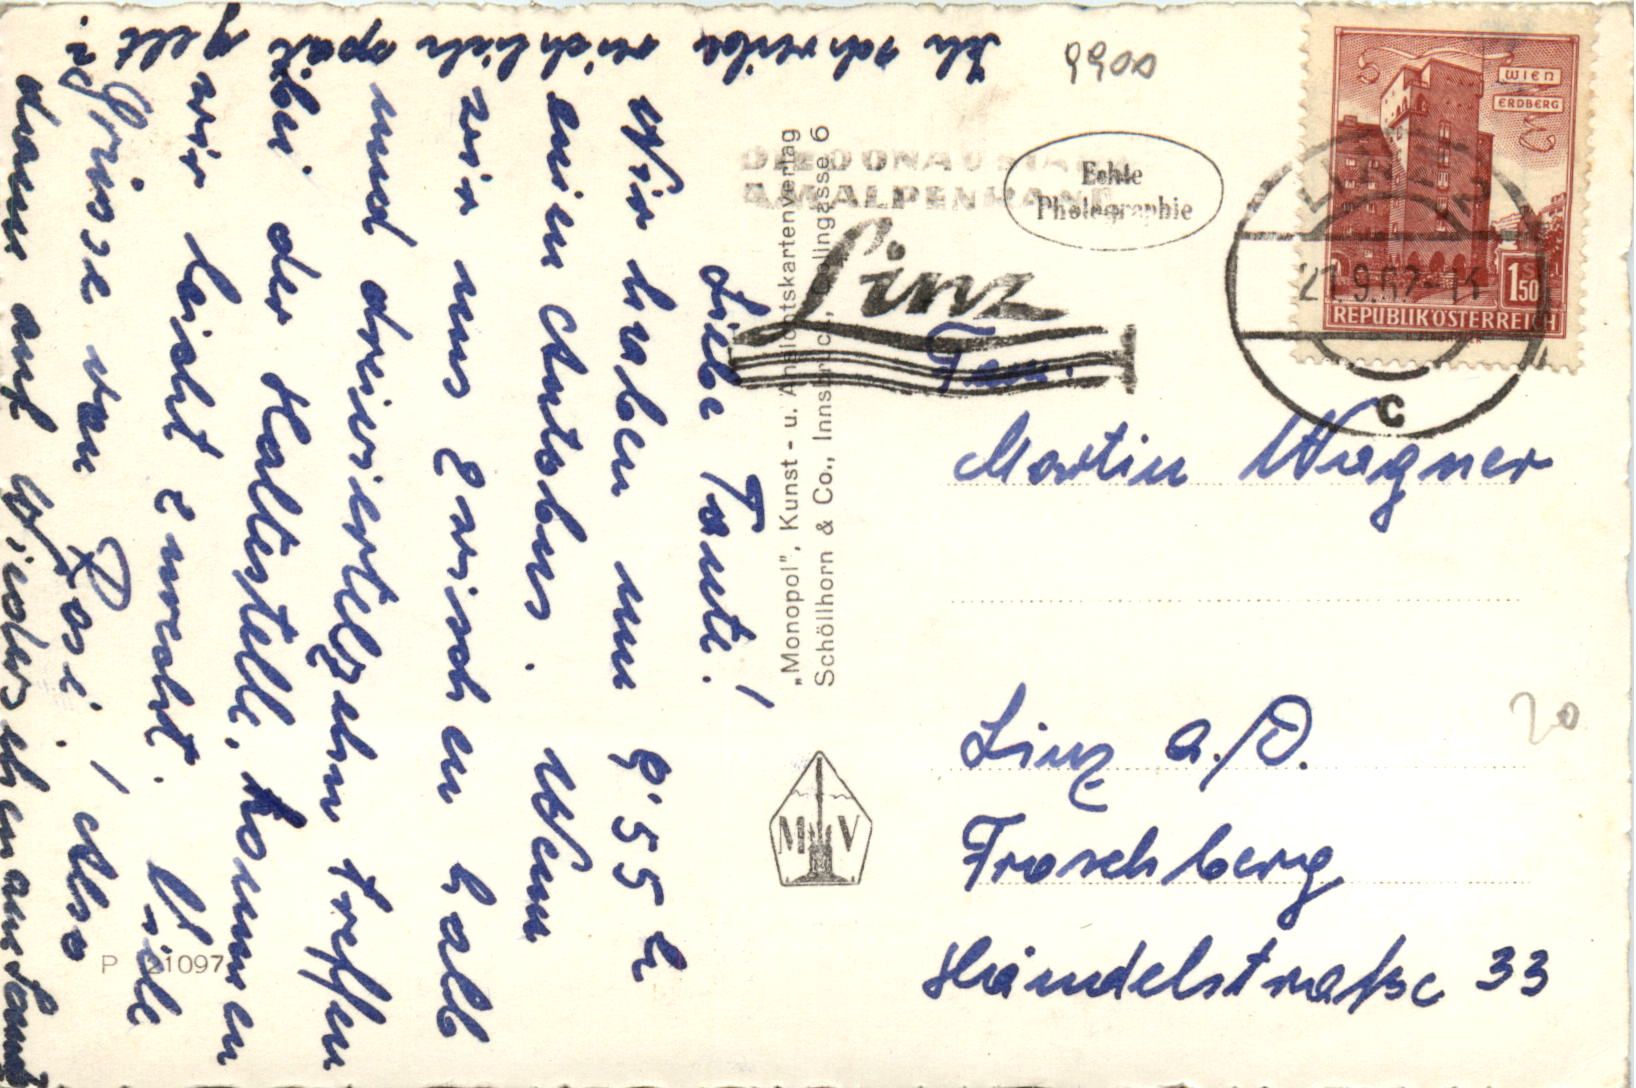 Liebe Tante!
Wir haben um 9'55 h
einen Autobus. Wenn
wir uns zwischen halb
und dreiviertelzehn treffen
bei der Haltestelle, kommen
wir leicht zurecht. Viele
Grüsse von Rosi. / Also
dann auf Wiedersehen am
Ich schreibe reichlich spät gelt?
9900
„Monopol", Kunst- u. Ansichtskartenverlag
Schöllhorn & Co., Innsbruck, 6
DIE DONAUSTADT
AM ALPENRAND
Linz
Echte
Photographie
WIEN
ERDBERG
1 S 50
REPUBLIK ÖSTERREICH
LINZ
C
Fam.
Martin Wagner
Linz a./D.
Froschberg
Händelstraße 33
20
M V
P 21097